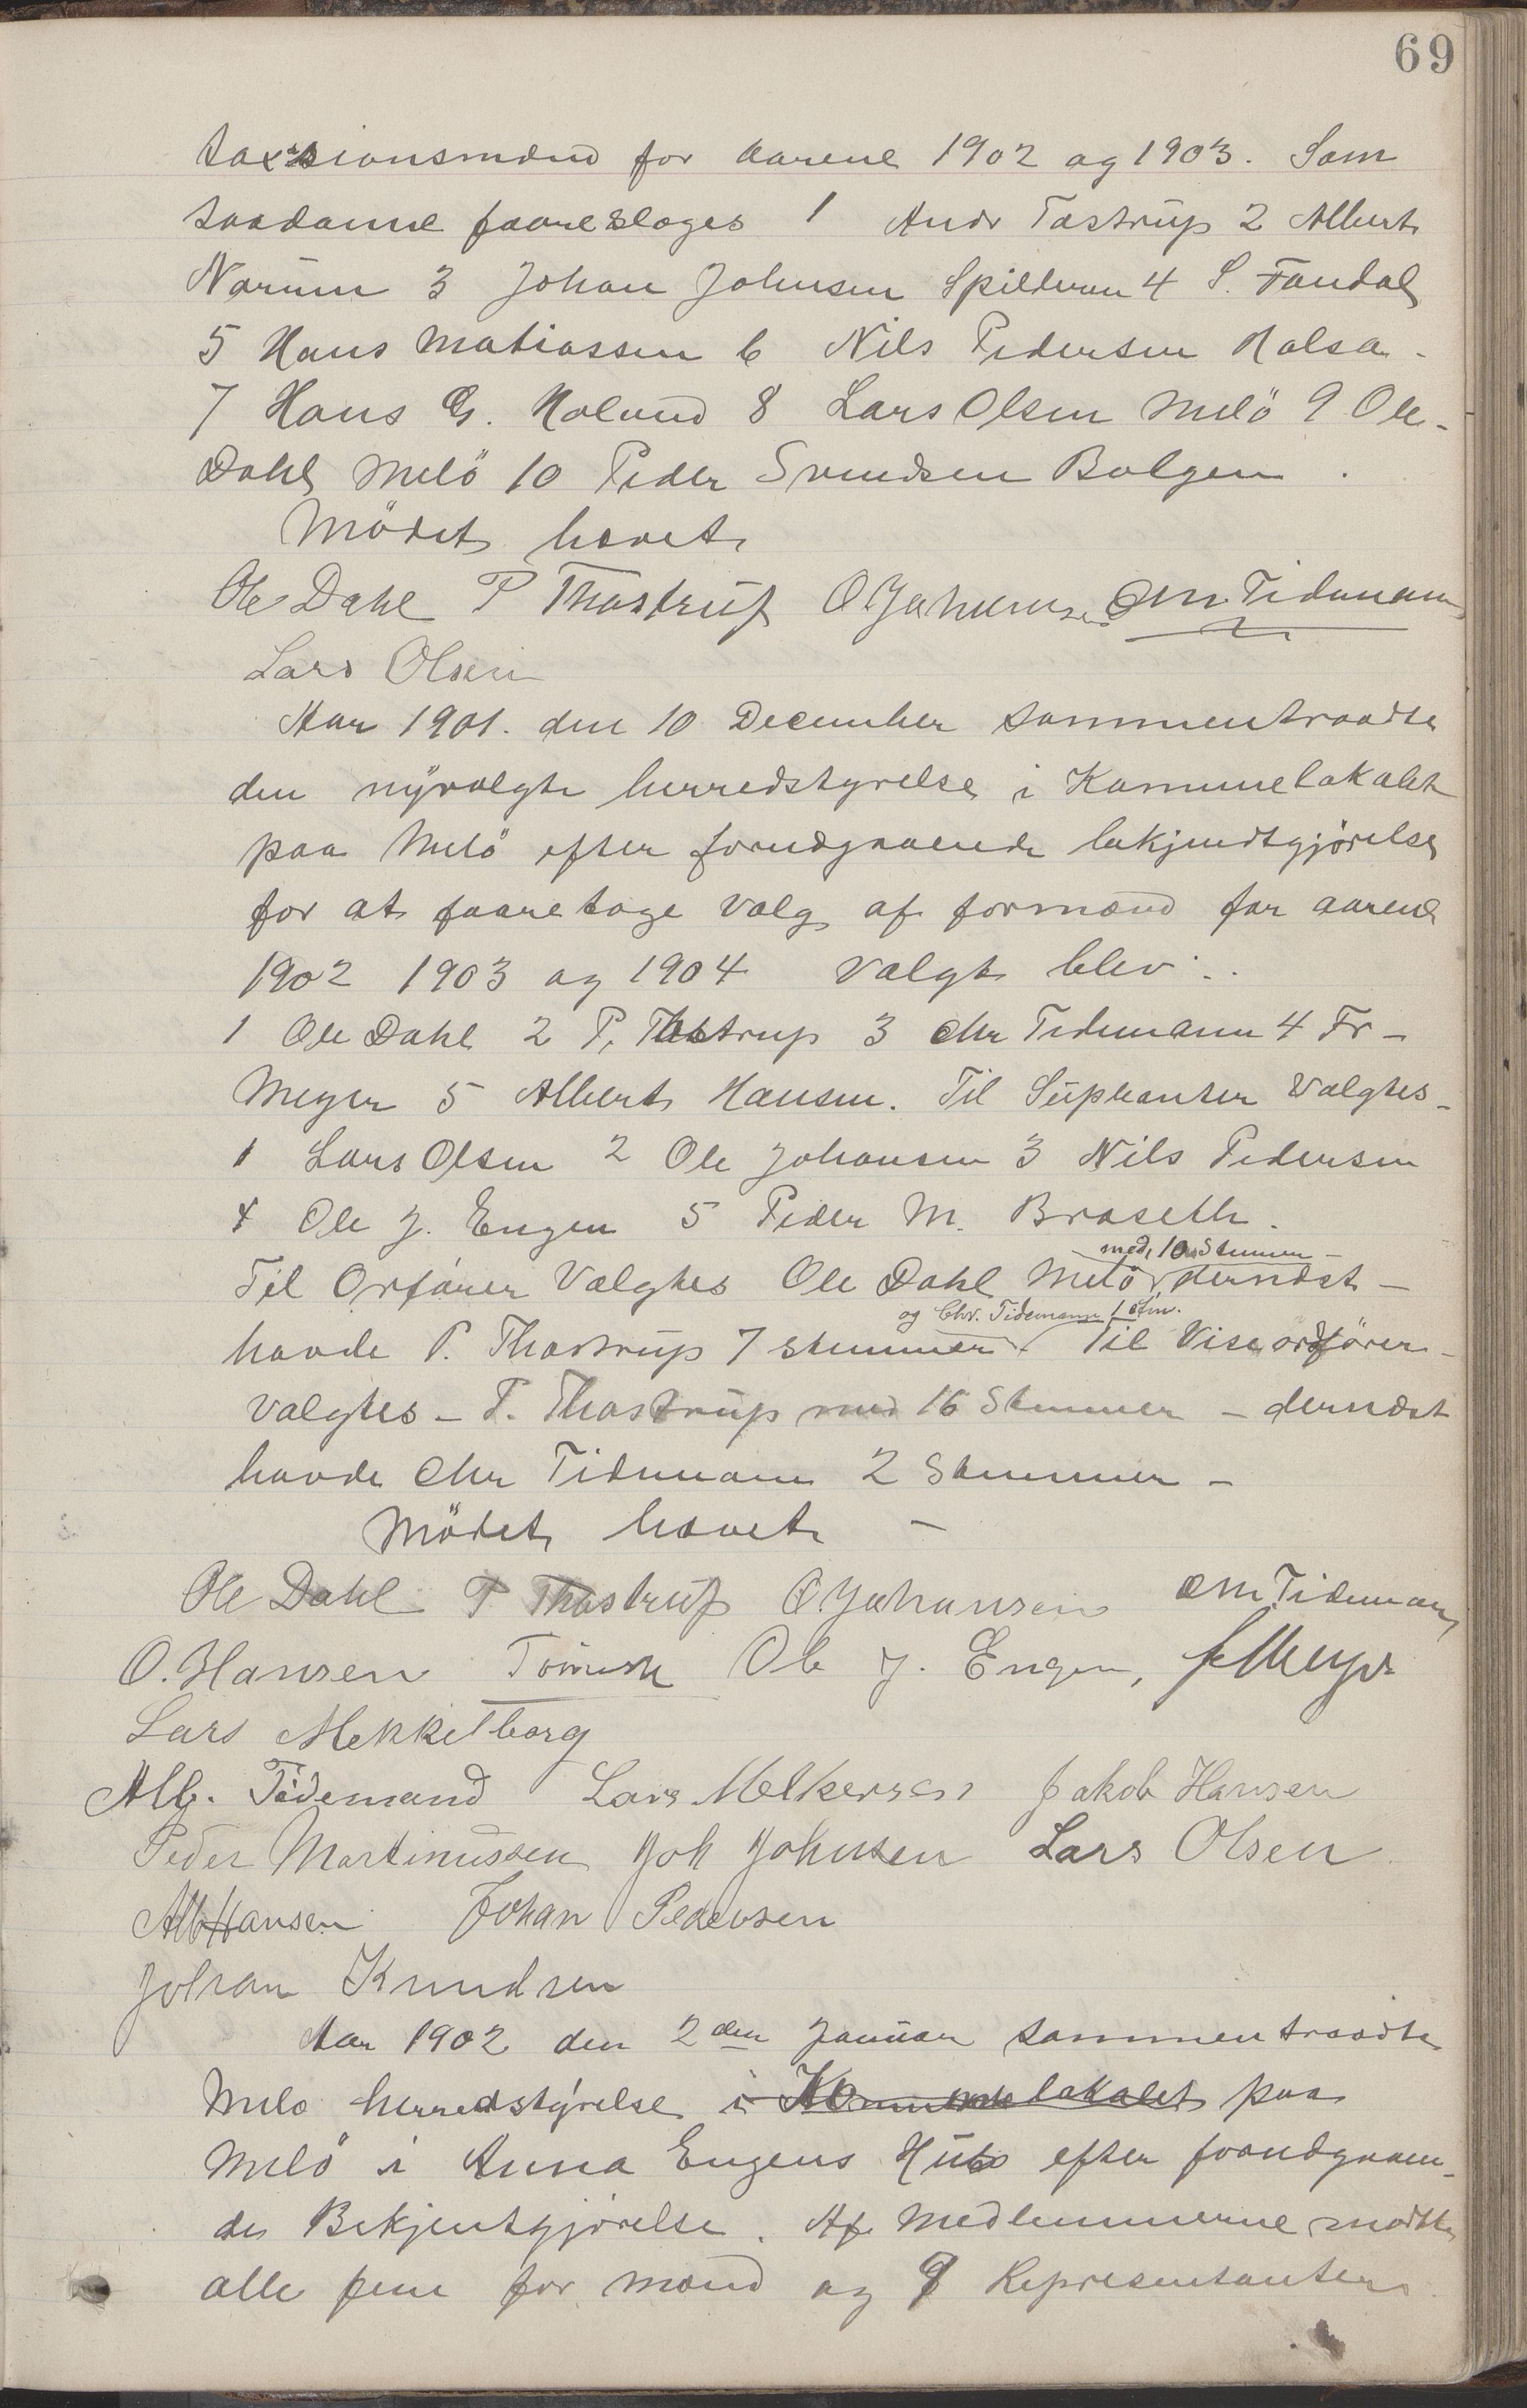 69
taxsionsmænd for aarene 1902 og 1903. Som
saadanne faareslages 1 Andr Tastrup 2 Albert
Narum 3 Johan Johnsen Spilderen 4 S. Fondal
5 Hans Matiassen 6 Nils Pedersen Halsa.
7 Hans G. Haland 8 Lars Olsen Melö 9 Ole
Dahl Melö 10 Peder Svendsen Bolgen.
Mödet hævet
Ole Dahl P Thastrup O. Johansen Chr. Tidemann
Lars Olsen
Aar 1901. den 10 December sammentraadte
den nyvalgte herredstyrelse i Kommunelokalet
paa Melö efter forudgaaende bekjendtgjörelse
for at faaretage valg af formænd for aarene
1902 1903 og 1904 valgt blev:
1 Ole Dahl 2 P. Thastrup 3 Chr Tidemann 4 Fr-
Meyer 5 Albert Hansen. Til Supleanter Valgtes-
1 Lars Olsen 2 Ole Johansen 3 Nils Pedersen
4 Ole J. Engen 5 Peder M. Braseth.
med 10 Stemmer -
Til Orfører Valgtes Ole Dahl Melö dernæst -
og Chr. Tidemann 1 stm.
havde P. Thastrup 7 stemmer. Til Viseordförer-
valgtes - P. Thastrup med 16 Stemmer - dernæst
havde Chr Tidemann 2 Stemmer -
Mödet hævet -
Ole Dahl P Thastrup O. Johansen Chr. Tidemann
O. Hansen Ole J. Engen, Fr Meyer
Lars Mekkelborg
Alb. Tidemand Lars Melkersen Jakob Hansen
Peder Martinussen Joh Johnsen Lars Olsen.
Alb Hansen Johan Pedersen
Johan Knudsen
Aar 1902 den 2den Januar sammentraadte
Melö herredstyrelse i Kommunelokalet paa
Melö i Anna Engens Hus efter forudgaaen-
de Bekjentgjörelse. Af Medlemmerne mödte
alle fem for mænd og 9 Representanter